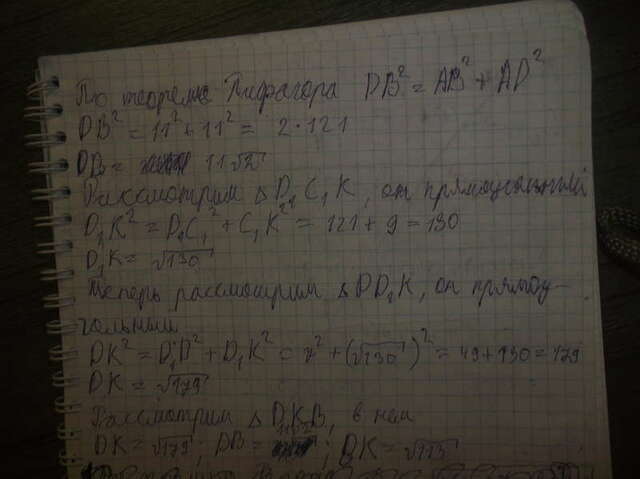 По теореме Пифагора DB² = AB² + AD²
DB² = 11² + 11² = 2·121
DB = 11√2
Рассмотрим Δ D₁C₁K, он прямоугольный
D₁K² = D₁C₁² + C₁K² = 121 + 9 = 130
D₁K = √130
Теперь рассмотрим Δ DD₁K, он прямоу-
гольный
DK² = D₁D² + D₁K² = 7² + (√130)² = 49 + 130 = 179
DK = √179
Рассмотрим Δ DKB, в нем
DK = √179; DB = 11√2; DK = √113